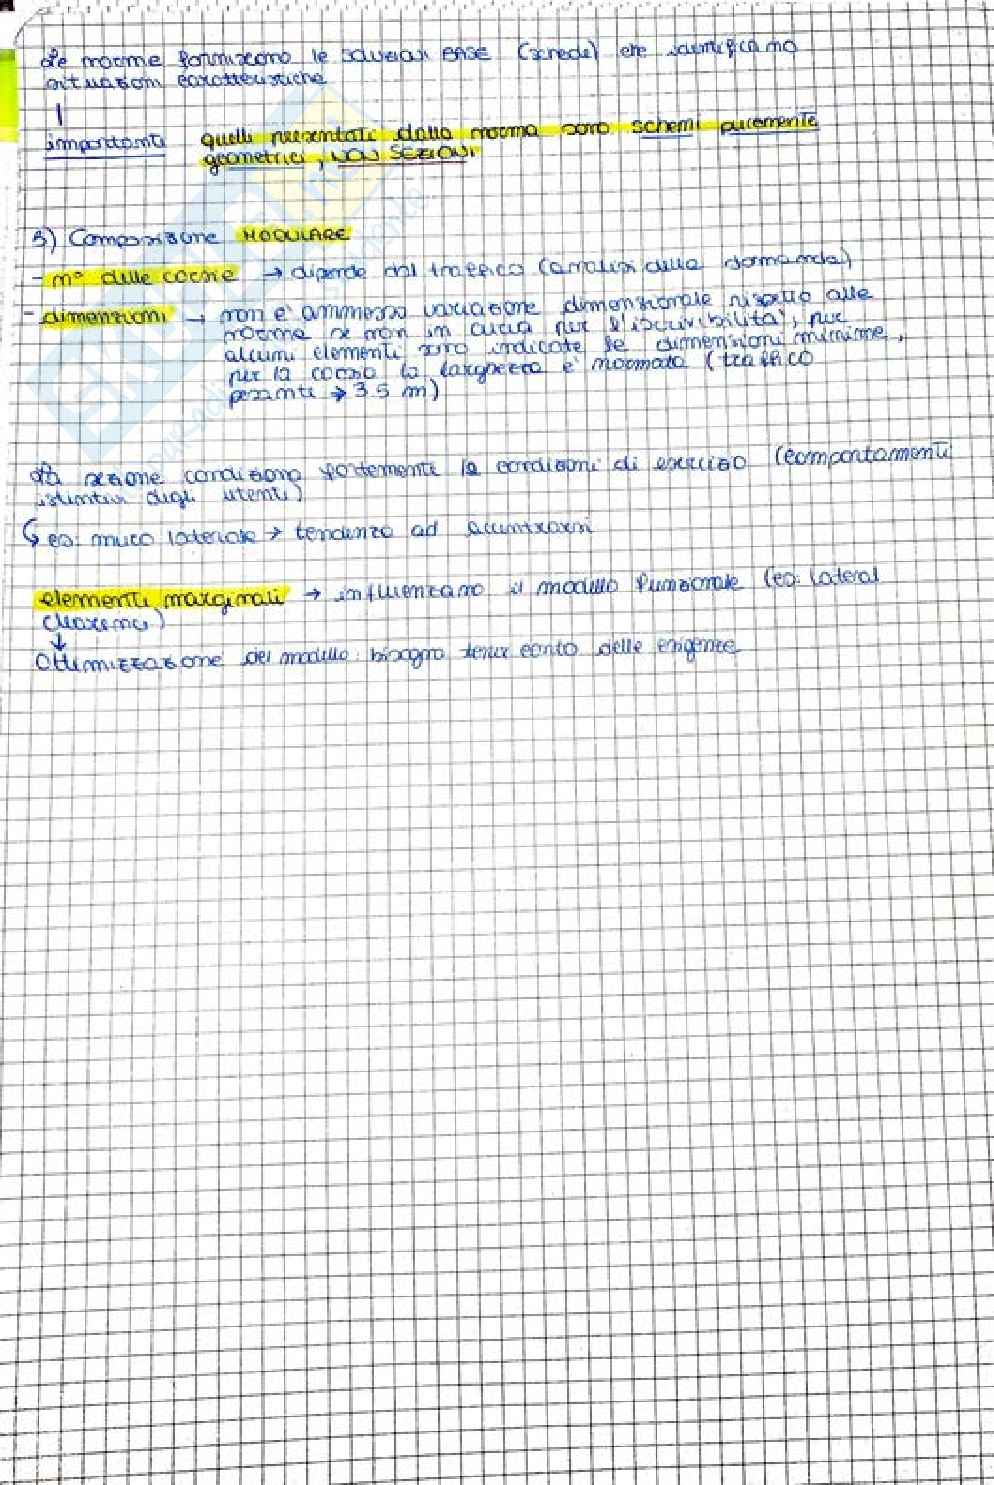 Le norme forniscono le soluzioni BASE (schede) che identificano
situazioni caratteristiche
importante quelli presentati dalla norma sono schemi puramente
geometrici, NON SEZIONI
3) Composizione MODULARE
- n° delle corsie → dipende dal traffico (analisi della domanda)
- dimensioni → non è ammessa variazione dimensionale rispetto alle
norme se non in curva per l'iscrivibilità, per
alcuni elementi sono indicate le dimensioni minime,
per la corsia la larghezza è normata (traffico
pesante → 3.5 m)
La sezione condiziona fortemente le condizioni di esercizio (comportamenti
istintivi degli utenti)
es. muro laterale → tendenza ad accentrarsi
elementi marginali → influenzano il modulo funzionale (es. lateral
clearence)
Ottimizzazione del modulo: bisogna tener conto delle esigenze